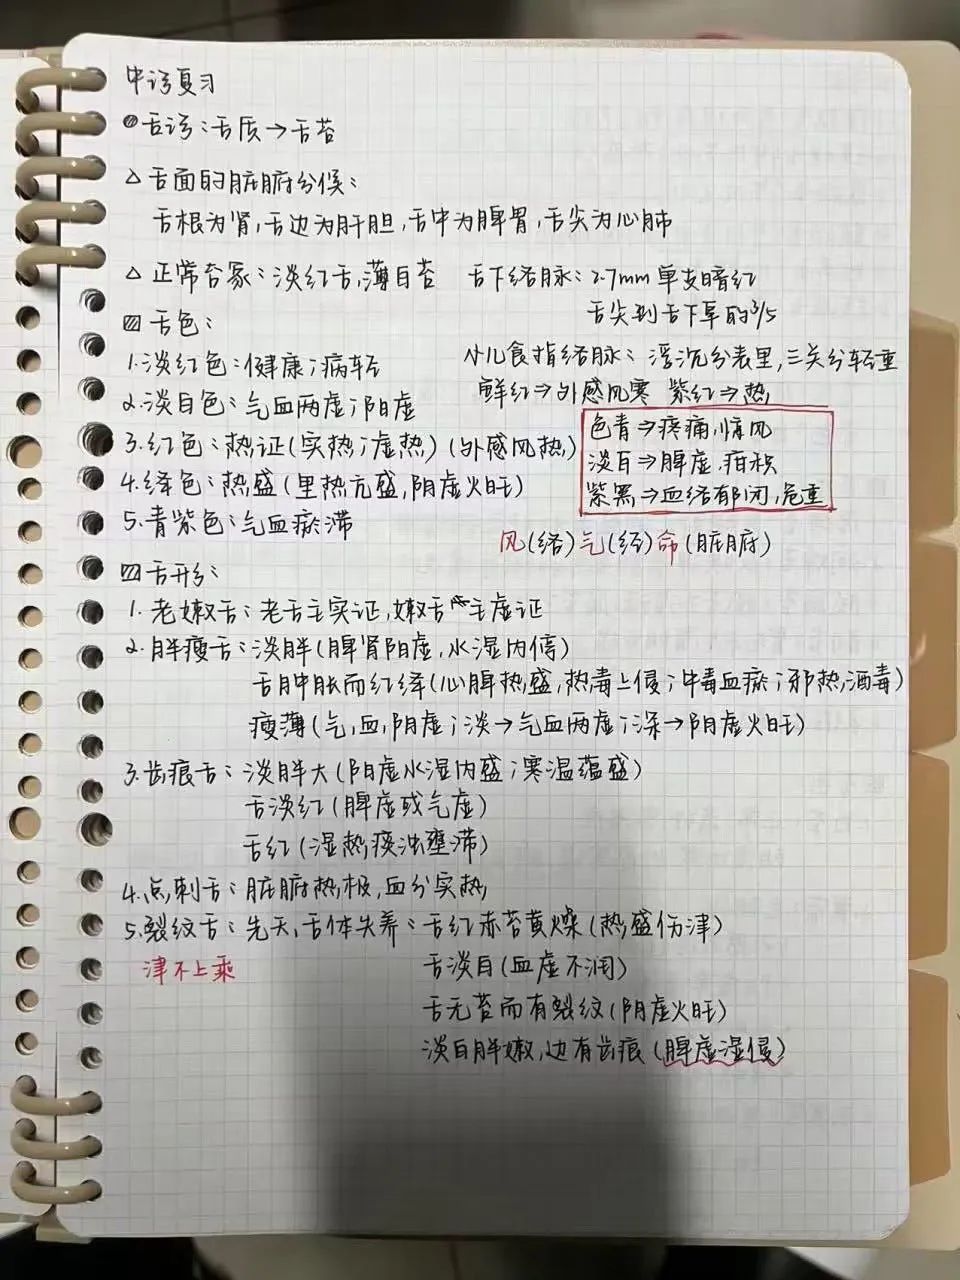 中诊复习
舌诊：舌质→舌苔
△舌面的脏腑分候：
舌根为肾，舌边为肝胆，舌中为脾胃，舌尖为心肺
△正常舌象：淡红舌，薄白苔
舌下络脉：2.7mm 单支暗红
舌尖到舌下阜的3/5
舌色：
1.淡红色：健康；病轻
2.淡白色：气血两虚；阳虚
3.红色：热证(实热；虚热)(外感风热)
4.绛色：热盛(里热亢盛，阴虚火旺)
5.青紫色：气血瘀滞
小儿食指络脉：浮沉分表里，三关分轻重
鲜红⇒外感风寒 紫红⇒热
色青⇒疼痛，惊风
淡白⇒脾虚，疳积
紫黑⇒血络郁闭，危重
风(络)气(经)命(脏腑)
舌形：
1.老嫩舌：老舌主实证，嫩舌主虚证
2.胖瘦舌：淡胖(脾肾阳虚，水湿内停)
舌肿胀而红绛(心脾热盛，热毒上侵；中毒血瘀；邪热，酒毒)
瘦薄(气，血，阴虚；淡→气血两虚；深→阴虚火旺)
3.齿痕舌：淡胖大(阳虚水湿内盛；寒湿蕴盛)
舌淡红(脾虚或气虚)
舌红(湿热痰浊壅滞)
4.点刺舌：脏腑热极，血分实热
5.裂纹舌：先天，舌体失养：舌红赤苔黄燥(热盛伤津)
津不上乘
舌淡白(血虚不润)
舌无苔而有裂纹(阴虚火旺)
淡白胖嫩，边有齿痕(脾虚湿侵)